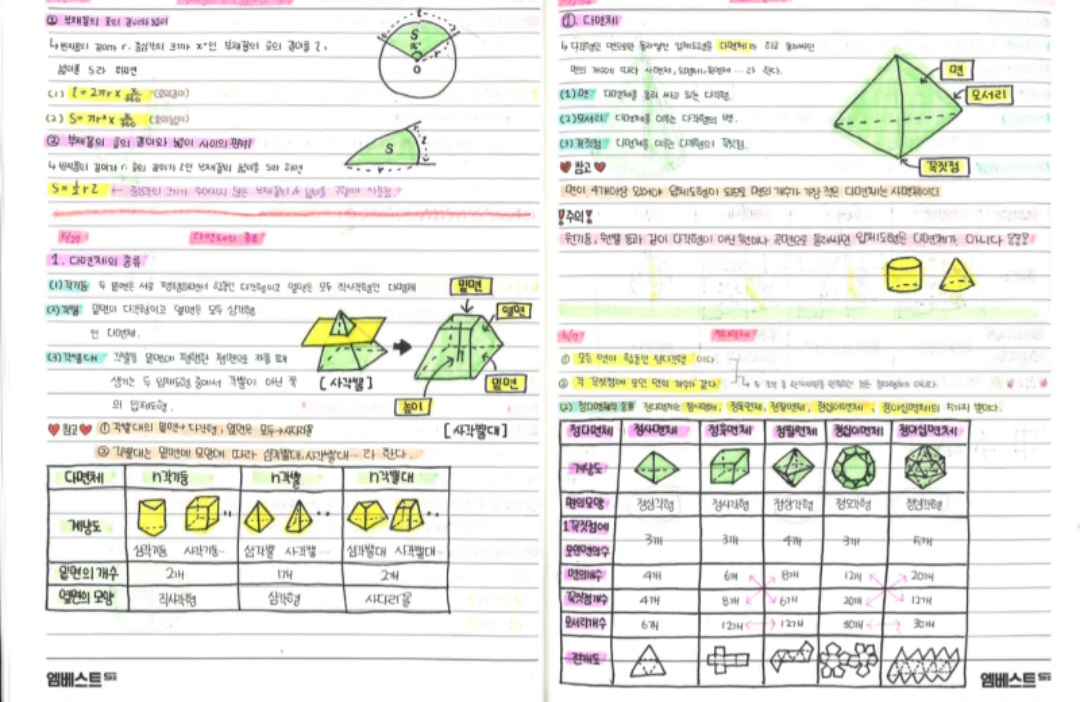 ② 부채꼴의 호의 길이와 넓이
↳ 반지름의 길이가 r, 중심각의 크기가 x°인 부채꼴의 호의 길이를 l,
넓이를 S라 하면
(1) l = 2πr × x/360 (호의길이)
(2) S = πr² × x/360
③ 부채꼴의 호의 길이와 넓이 사이의 관계
↳ 반지름의 길이가 r, 호의 길이가 l인 부채꼴의 넓이를 S라 하면
S = ½rl ← 중심각의 크기가 주어지지 않은 부채꼴의 넓이를 구할때 사용됨
S
x°
r
O
l
S
r
l
다면체의 종류
1. 다면체의 종류
(1) 각기둥 두 밑면은 서로 평행하면서 합동인 다각형이고 옆면은 모두 직사각형인 다면체
(2) 각뿔 밑면이 다각형이고 옆면은 모두 삼각형
인 다면체.
(3) 각뿔대 각뿔을 밑면에 평행한 평면으로 자를 때
생기는 두 입체도형 중에서 각뿔이 아닌 쪽
의 입체도형.
밑면
옆면
밑면
높이
h
[사각뿔]
[사각뿔대]
♥참고♥ ① 각뿔대의 밑면→다각형, 옆면은 모두→사다리꼴
② 각뿔대는 밑면에 모양에 따라 삼각뿔대, 사각뿔대… 라 한다.
다면체 n각기둥 n각뿔 n각뿔대
겨냥도
삼각기둥 사각기둥… 삼각뿔 사각뿔… 삼각뿔대 사각뿔대…
밑면의 개수 2개 1개 2개
옆면의 모양 직사각형 삼각형 사다리꼴
엠베스트SE
①. 다면체
↳ 다각형인 면으로만 둘러싸인 입체도형을 다면체라 하고 둘러싸인
면의 개수에 따라 사면체, 오면체, 육면체 … 라 한다.
(1) 면 다면체를 둘러 싸고 있는 다각형.
(2) 모서리 다면체를 이루는 다각형의 변.
(3) 꼭짓점 다면체를 이루는 다각형의 꼭짓점.
면
모서리
꼭짓점
♥참고♥
면이 4개이상 있어야 입체도형이 되므로 면의 개수가 가장 적은 다면체는 사면체이다
!주의!
원기둥, 원뿔 등과 같이 다각형이 아닌 원이나 곡면으로 둘러싸인 입체도형은 다면체가 아니다
정다면체
① 모든 면이 합동인 정다각형 이다.
② 각 꼭짓점에 모인 면의 개수가 같다.
(2) 정다면체의 종류 정다면체는 정사면체, 정육면체, 정팔면체, 정십이면체, 정이십면체의 5가지 뿐이다.
정다면체 정사면체 정육면체 정팔면체 정십이면체 정이십면체
겨냥도
면의모양 정삼각형 정사각형 정삼각형 정오각형 정삼각형
1꼭짓점에
모인면의수 3개 3개 4개 3개 5개
면의개수 4개 6개 8개 12개 20개
꼭짓점개수 4개 8개 6개 20개 12개
모서리개수 6개 12개 12개 30개 30개
전개도
엠베스트SE